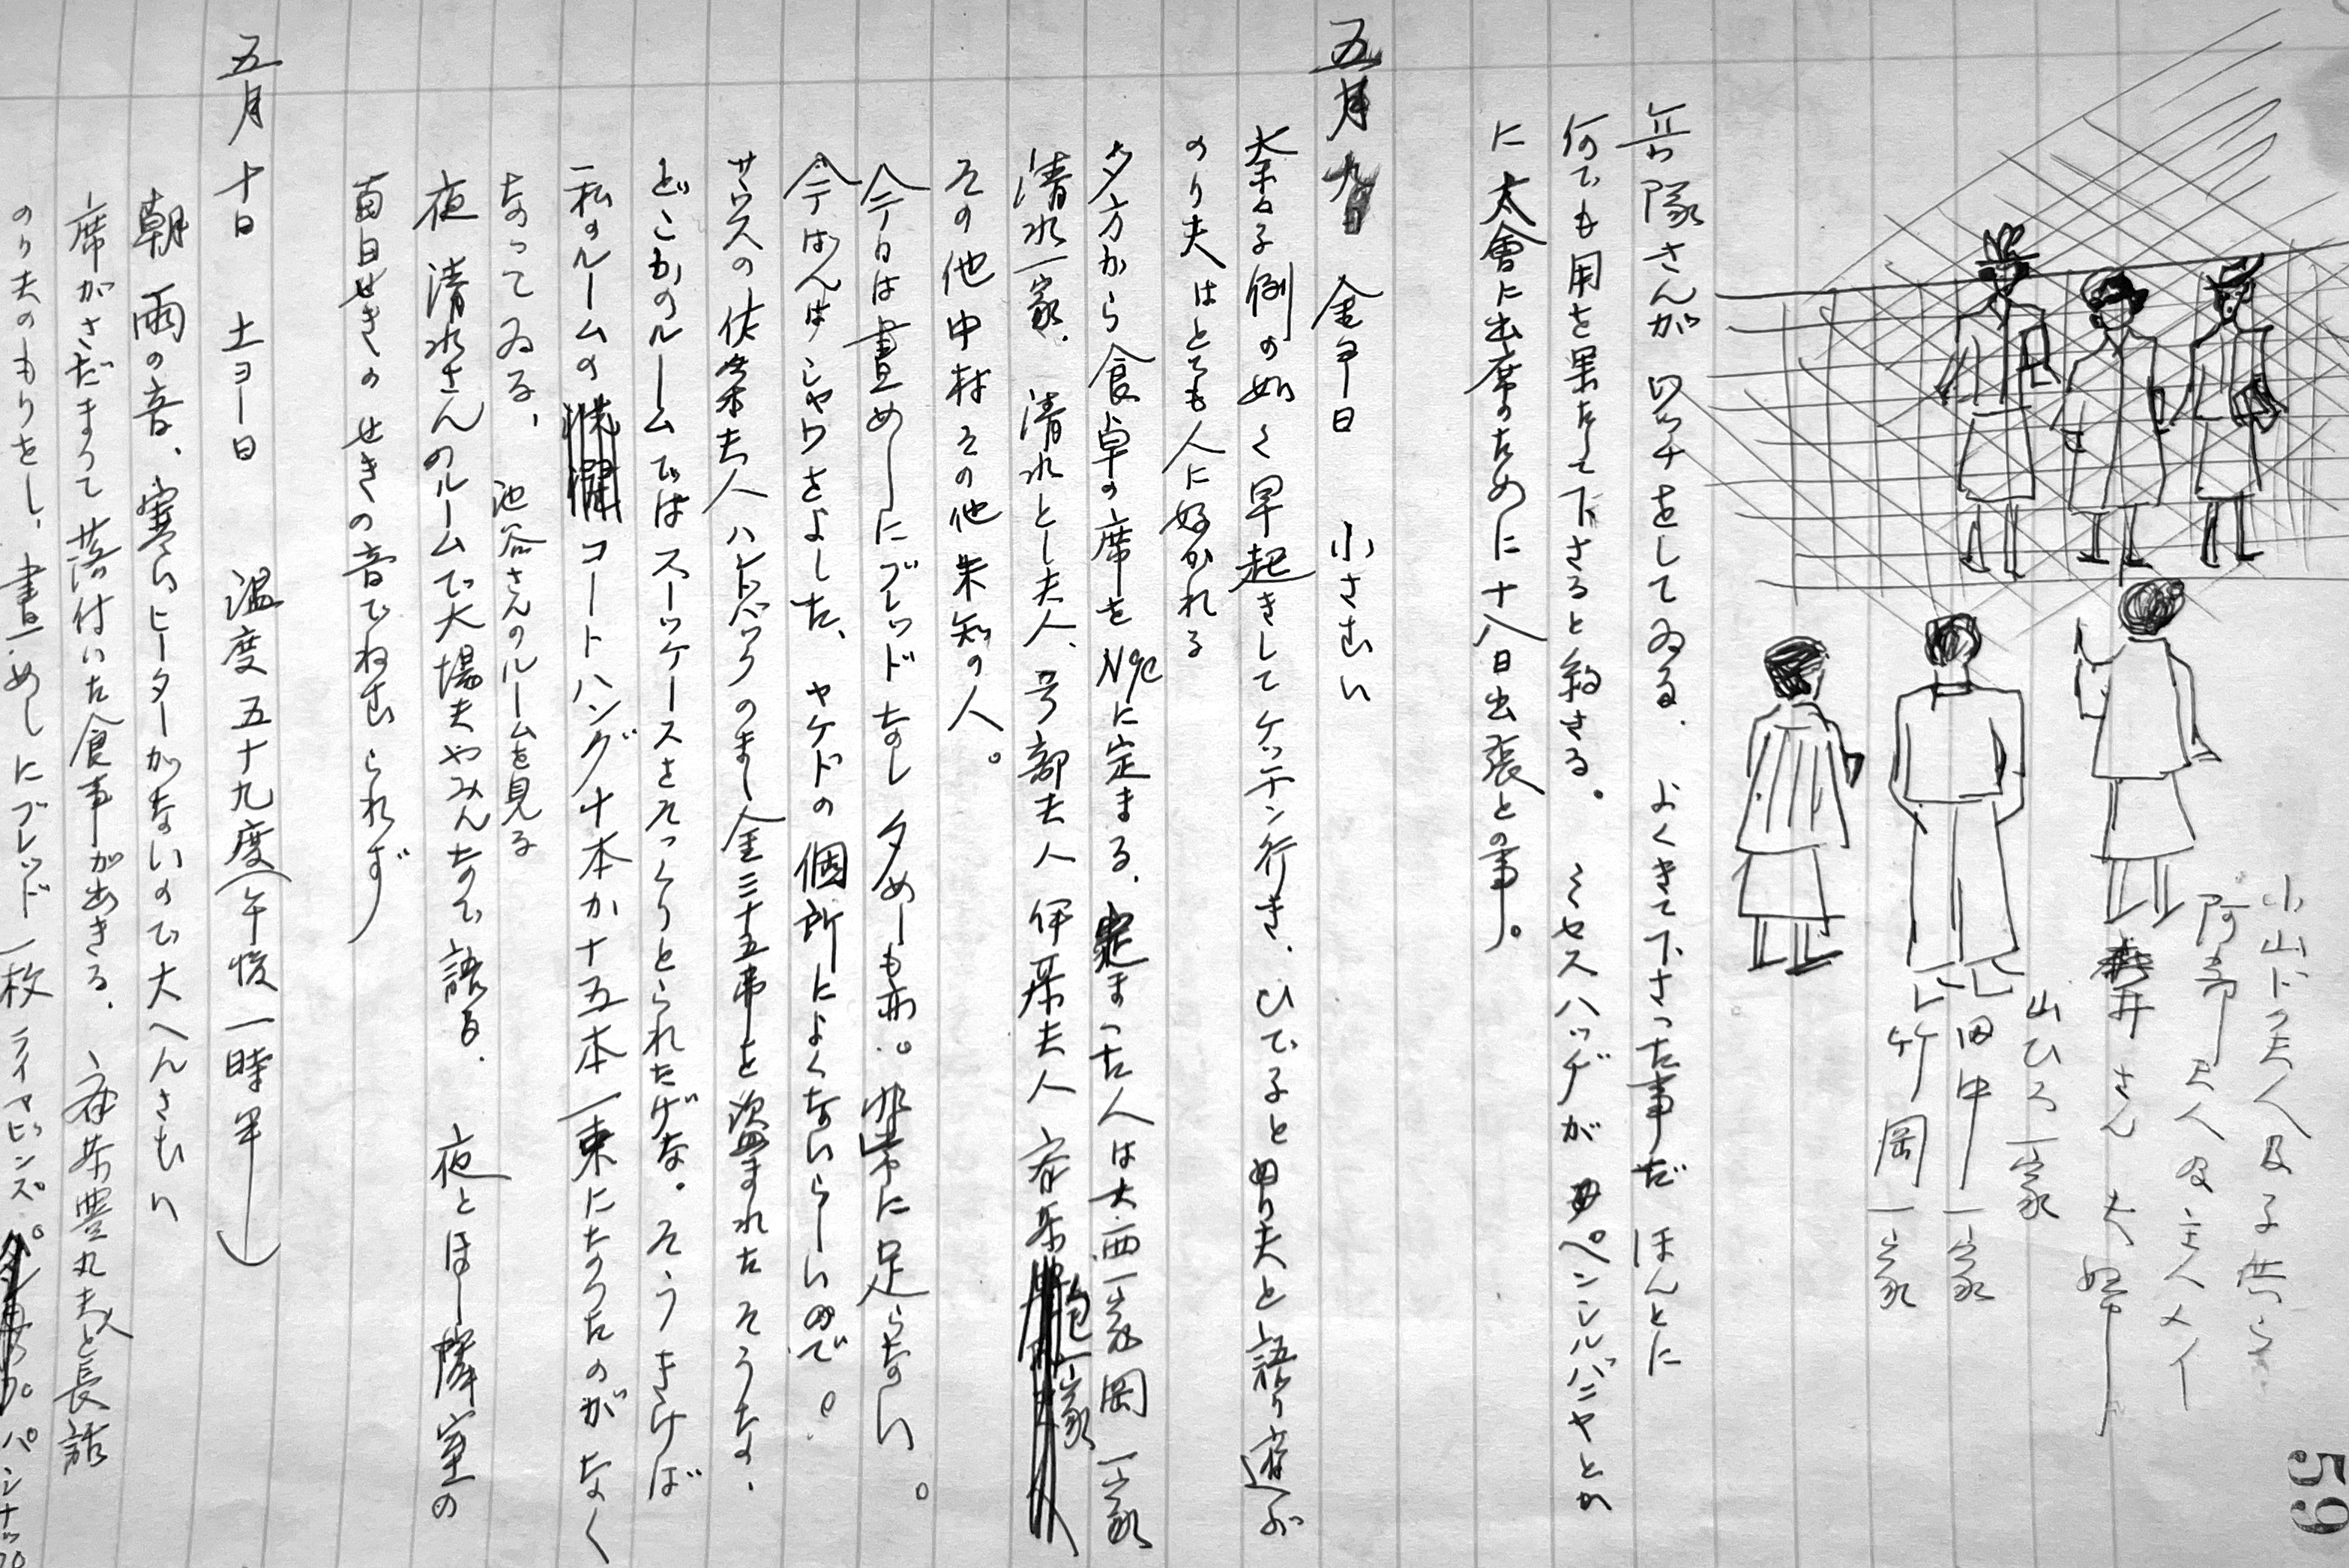 小山ドク夫人及子供ら
阿部夫人及主人メイ
井さん夫婦
山ひろ一家
田中一家
竹岡一家
兵隊さんがワッチをしてゐる、よくきて下さった事だほんとに
何でも用を果たして下さると給さる。ミセスハッヂがペンシルバニヤとか
に大會に出席のために十八日出張との事。
五月九日 金ヨー日 小さむい
奈る子例の如く早起きしてケッチン行き、ひでるとのり夫と語り遊ぶ
のり夫はとても人に好かれる
夕方から食卓の席を に定まる、定まった人は大西一家岡一家
清水一家、清水とし夫人、 部夫人 伊 夫人 一家
その他中村その他未知の人。
今日は晝めしにブレッドなし夕めしも亦。非常に足らない。
今ばんはシャワをよした、ヤケドの個所によくないらしいので。
サウスの佐 夫人ハンドバックのまし金三十五弗を盗まれたそうな、
どこかのルームではスーツケースさえっくりとられたげな。そうきけば
私のルームのコートハング十本か十五本一束にたのがなく
なってゐる、池谷さんのルームを見る
夜清水さんのルームで大場夫やみんなで語る、夜とほし隣室の
面白せきのせきの音でねむられず
五月十日 土ヨー日 温度五十九度(午後一時半)
朝雨の音、寒いヒーターがないので大へんさむい
席がさだまって落付いた食事があきる、 豊丸夫人と長話
のり夫のもりをし、晝めしにブレッド一枚ライスビンズ パンナップ
59